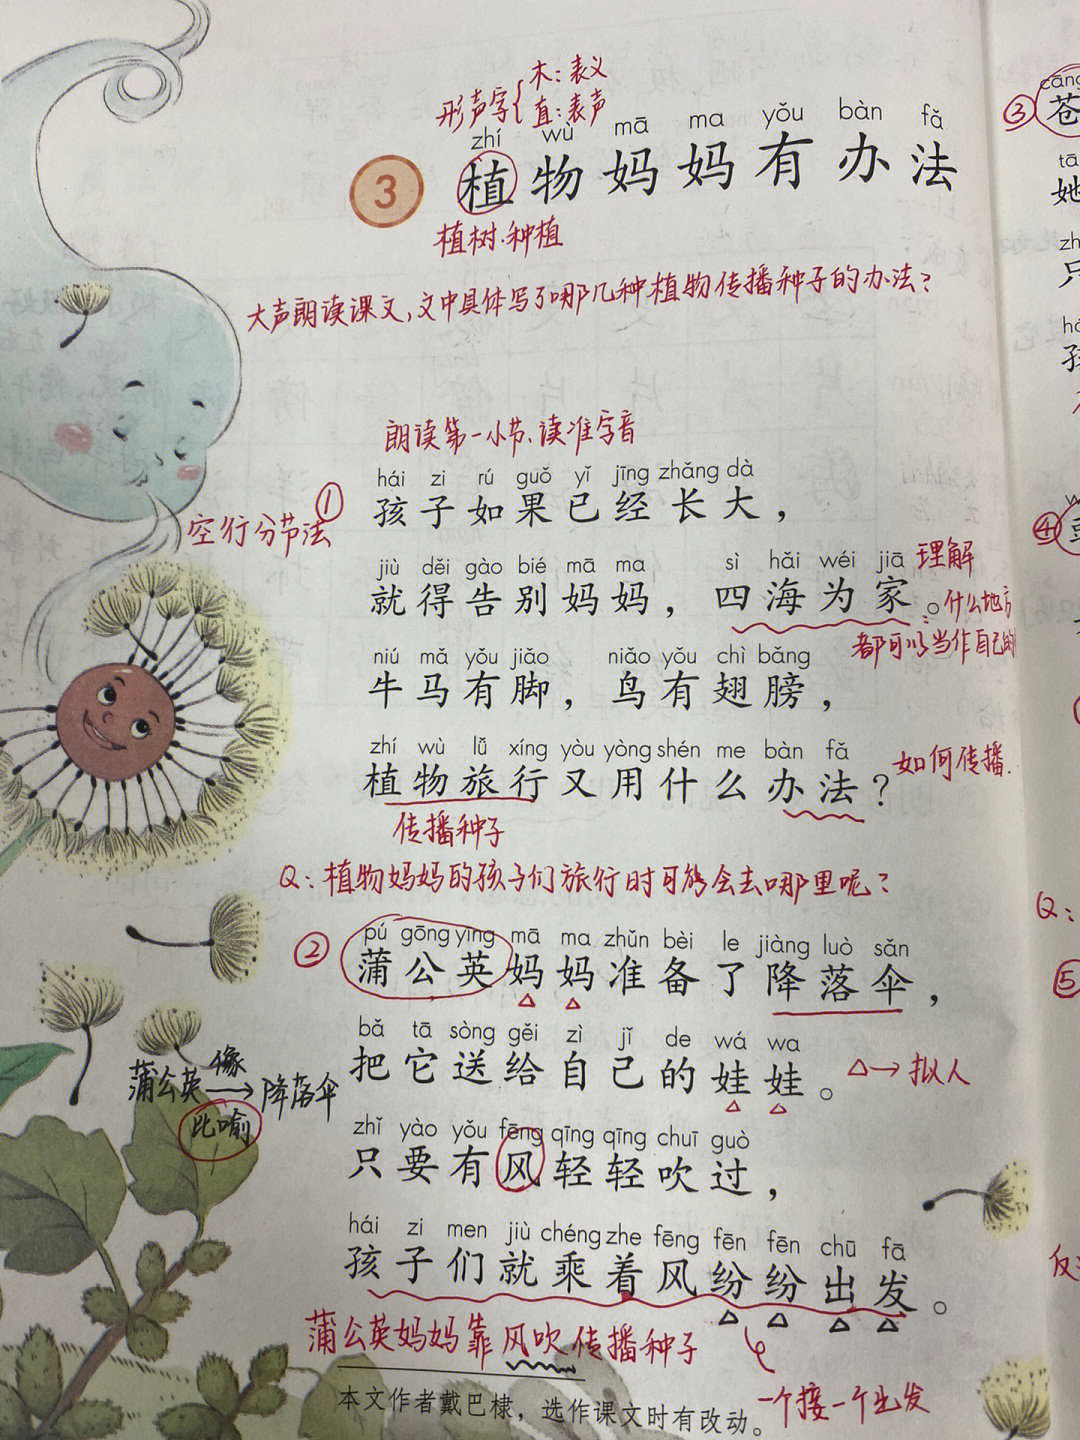 形声字{木:表义
直:表声
zhí wù mā ma yǒu bàn fǎ
3 植物妈妈有办法
植树.种植
大声朗读课文,文中具体写了哪几种植物传播种子的办法?
朗读第一小节、读准字音
hái zi rú guǒ yǐ jīng zhǎng dà
① 孩子如果已经长大，
空行分节法
jiù děi gào bié mā ma sì hǎi wéi jiā
就得告别妈妈，四海为家。
理解
什么地方
都可以当作自己的
niú mǎ yǒu jiǎo niǎo yǒu chì bǎng
牛马有脚，鸟有翅膀，
zhí wù lǚ xíng yòu yòng shén me bàn fǎ
植物旅行又用什么办法？
如何传播.
传播种子
Q:植物妈妈的孩子们旅行时可能会去哪里呢?
pú gōng yīng mā ma zhǔn bèi le jiàng luò sǎn
② 蒲公英妈妈准备了降落伞，
bǎ tā sòng gěi zì jǐ de wá wa
把它送给自己的娃娃。
△→拟人
蒲公英 像→ 降落伞
比喻
zhǐ yào yǒu fēng qīng qīng chuī guò
只要有风轻轻吹过，
hái zi men jiù chéng zhe fēng fēn fēn chū fā
孩子们就乘着风纷纷出发。
蒲公英妈妈靠风吹传播种子
一个接一个出发
本文作者戴巴棣，选作课文时有改动。
③ cāng
苍
tā
她
zh
只
há
孩
④
Q:
⑤
反